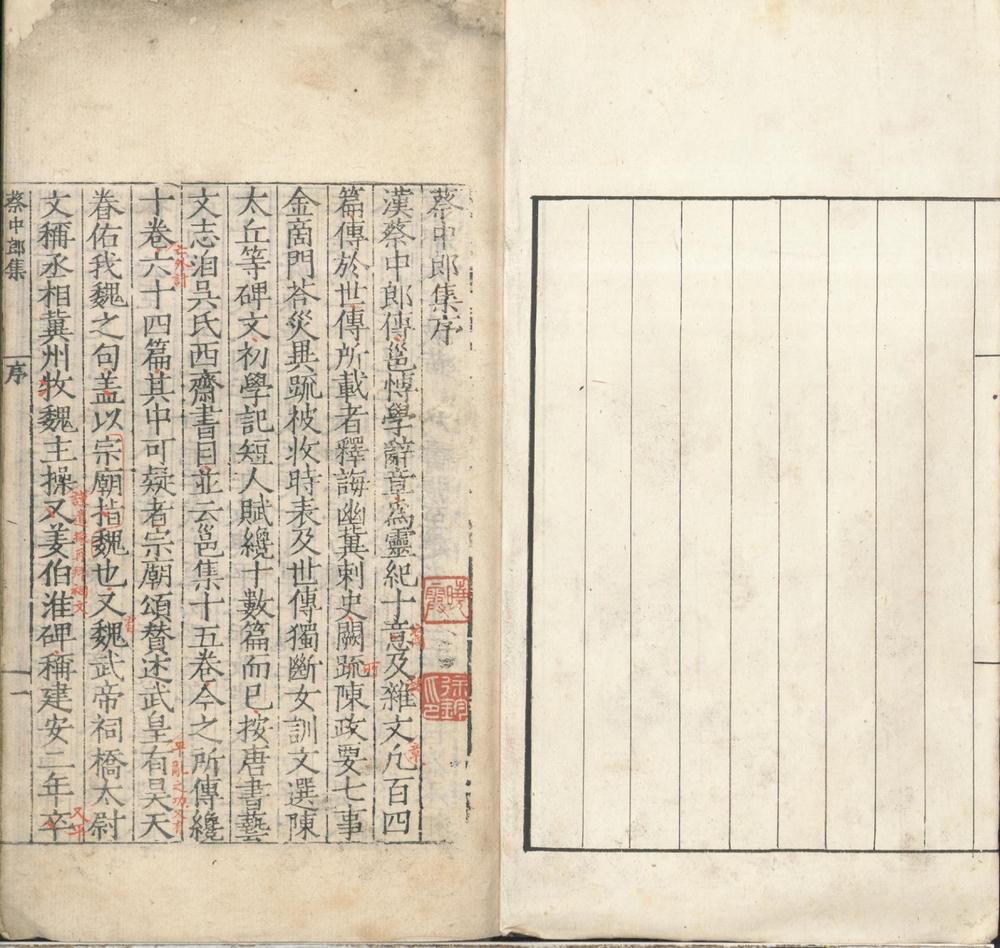 蔡中郎集序
漢蔡中郎傳邕博學辭章爲靈紀十意及雜文凡百四
篇傳於世傳所載者釋誨幽冀刺史闕䟽陳政要七事
金商門荅災異䟽被收時表及世傳獨斷女訓文選陳
太丘等碑文初學記短人賦纔十數篇而已按唐書藝
文志洎吳氏西齋書目並云邕集十五卷今之所傳纔
十卷六十四篇其中可疑者宗廟頌賛述武皇有昊天
眷佑我魏之句盖以宗廟指魏也又魏武帝祠橋太尉
文稱丞相冀州牧魏主操又姜伯淮碑稱建安二年卒
蔡中郎集
序
一
曉霞
徐釚